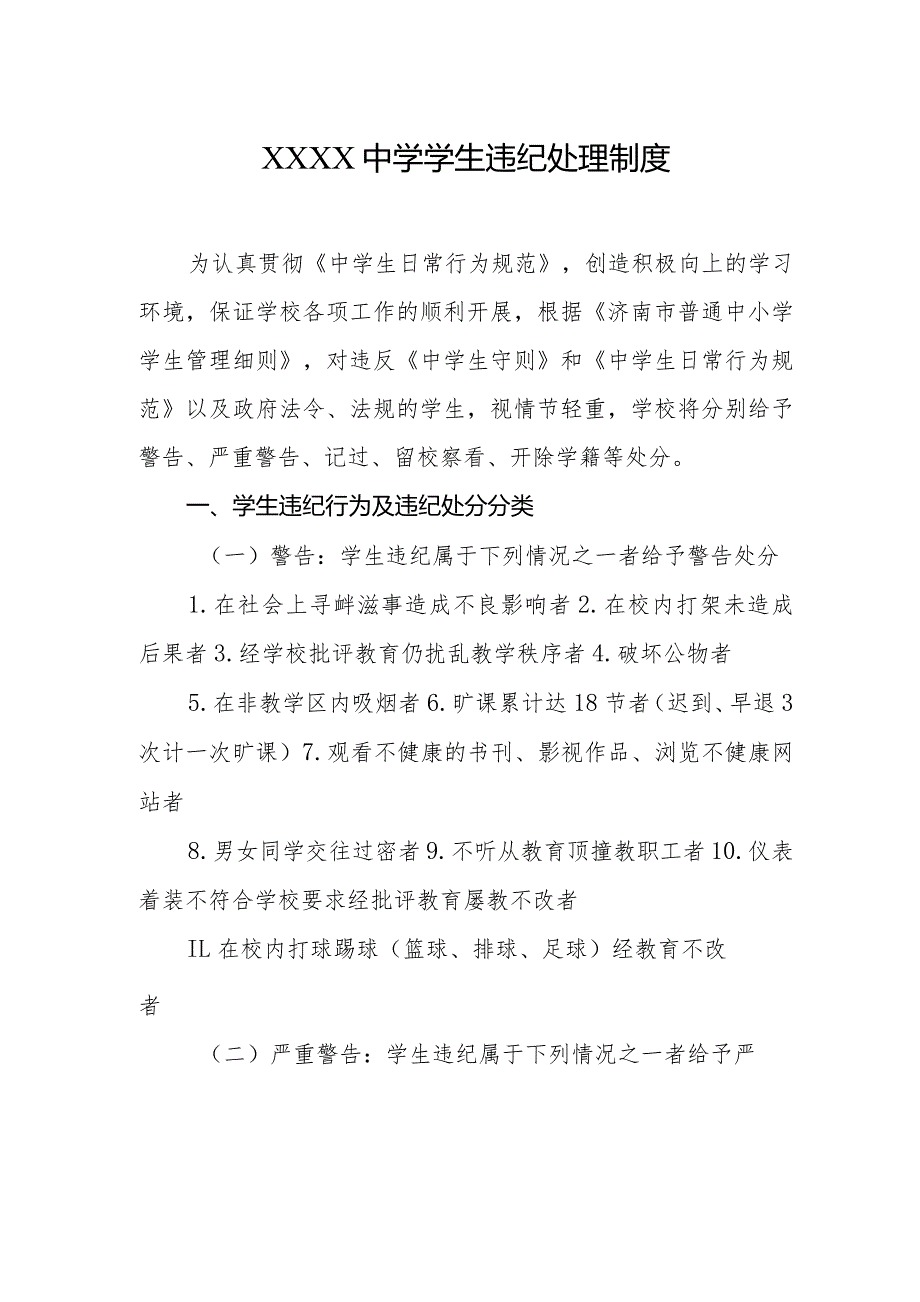 XXXX中学学生违纪处理制度
为认真贯彻《中学生日常行为规范》，创造积极向上的学习
环境，保证学校各项工作的顺利开展，根据《济南市普通中小学
学生管理细则》，对违反《中学生守则》和《中学生日常行为规
范》以及政府法令、法规的学生，视情节轻重，学校将分别给予
警告、严重警告、记过、留校察看、开除学籍等处分。
一、学生违纪行为及违纪处分分类
（一）警告：学生违纪属于下列情况之一者给予警告处分
1.在社会上寻衅滋事造成不良影响者 2.在校内打架未造成
后果者 3.经学校批评教育仍扰乱教学秩序者 4.破坏公物者
5.在非教学区内吸烟者 6.旷课累计达 18 节者（迟到、早退 3
次计一次旷课）7.观看不健康的书刊、影视作品、浏览不健康网
站者
8.男女同学交往过密者 9.不听从教育顶撞教职工者 10.仪表
着装不符合学校要求经批评教育屡教不改者
IL在校内打球踢球（篮球、排球、足球）经教育不改
者
（二）严重警告：学生违纪属于下列情况之一者给予严